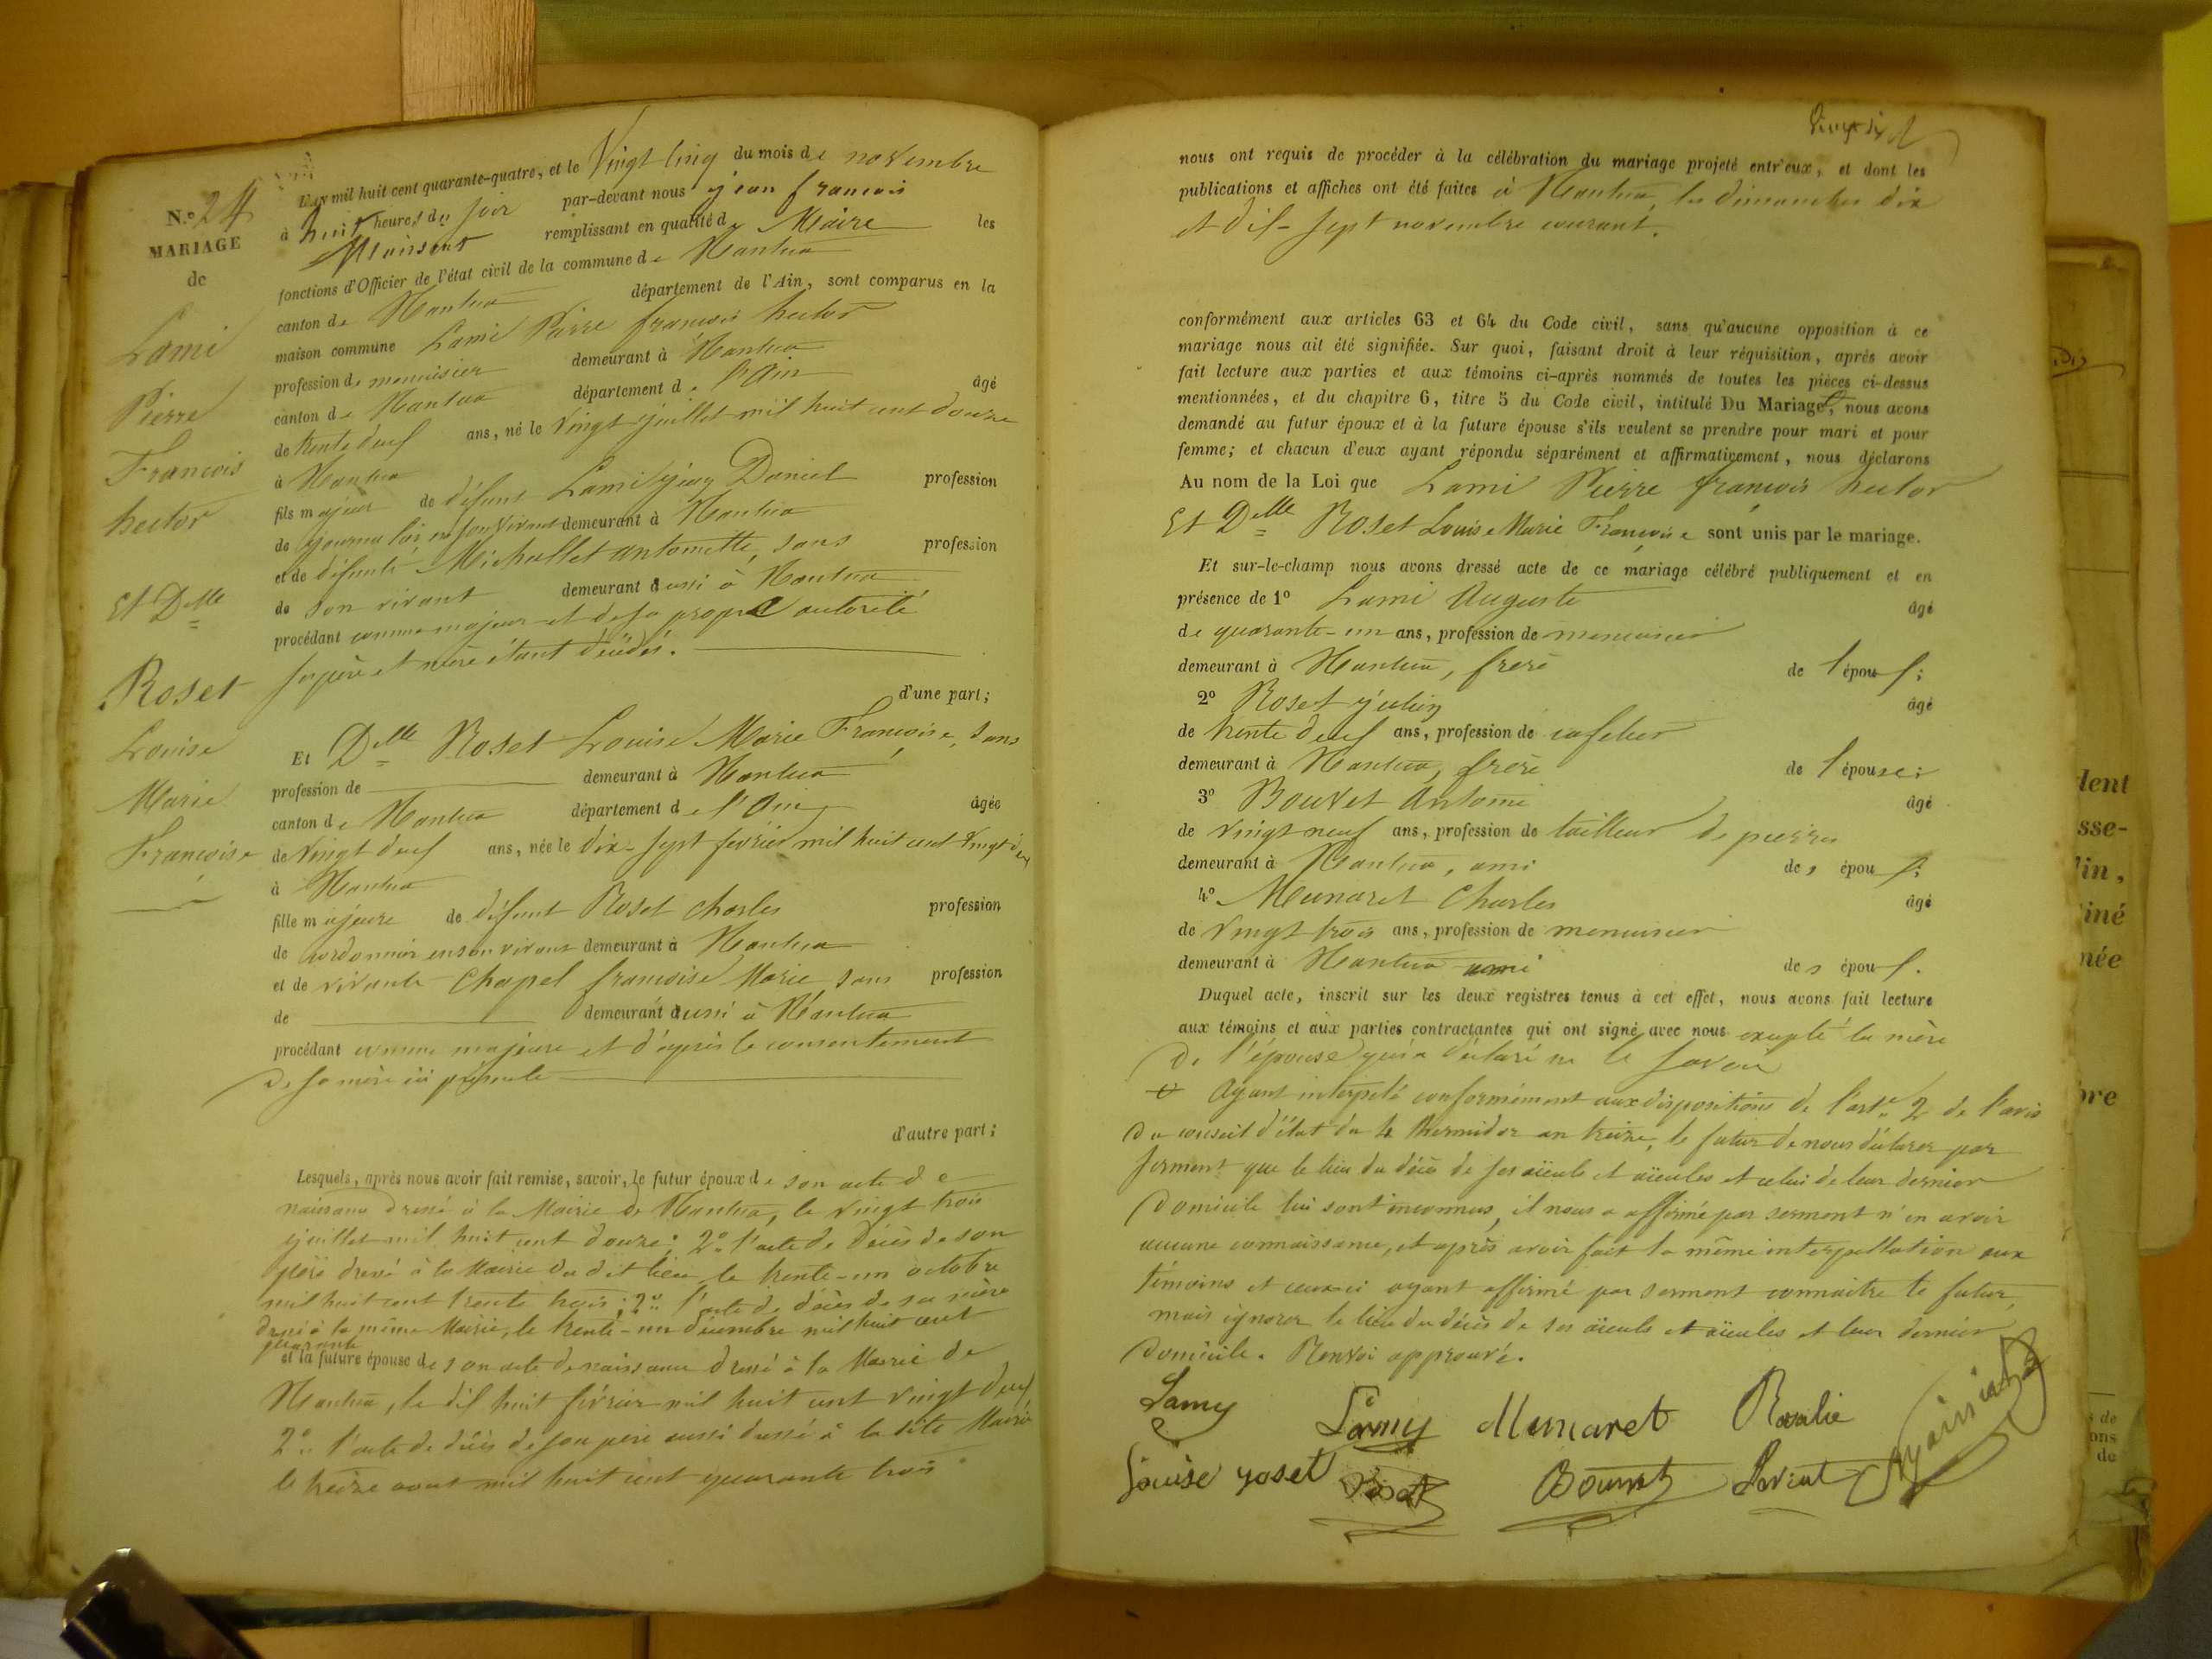 N.º 24
MARIAGE
de
Lami
Pierre
François
hector
Et Delle
Roset
Louise
Marie
Françoise
L'an mil huit cent quarante-quatre, et le Vingt Cinq du mois de novembre
à huit heures du soir par-devant nous jean francois
remplissant en qualité de Maire les
fonctions d'Officier de l'état civil de la commune de Nantua
canton de Nantua département de l'Ain, sont comparus en la
maison commune Lami Pierre françois hector
profession de menuisier demeurant à Nantua
canton de Nantua département de l'Ain âgé
de trente deux ans, né le vingt juillet mil huit cent douze
à Nantua
fils majeur de défunt Lami Daniel profession
de journalier en son vivant demeurant à Nantua
et de défunte Michallet antoinette, sans profession
de son vivant demeurant aussi à Nantua
procédant comme majeur et de sa propre autorité
ses père et mère étant décédés.
d'une part;
Et Delle Roset Louise Marie Françoise, sans
profession de demeurant à Nantua
canton de Nantua département de l'Ain âgée
de vingt deux ans, née le dix-sept février mil huit cent vingt deux
à Nantua
fille majeure de défunt Roset charles profession
de cordonnier en son vivant demeurant à Nantua
et de vivante Chapel françoise Marie sans profession
de demeurant aussi à Nantua
procédant comme majeure et d'après le consentement
de sa mère ici présente
d'autre part;
Lesquels, après nous avoir fait remise, savoir, le futur époux de son acte de
naissance dressé à la Mairie de Nantua, le vingt trois
juillet mil huit cent douze; 2º l'acte de décès de son
père dressé à la Mairie du dit lieu le trente-un octobre
mil huit cent trente trois; 3º l'acte de décès de sa mère
dressé à la même Mairie, le trente-un décembre mil huit cent
quarante
et la future épouse de son acte de naissance dressé à la Mairie de
Nantua, le dix huit février mil huit cent vingt deux
2º l'acte de décès de son père aussi dressé à la dite Mairie
le treize aout mil huit cent quarante trois
nous ont requis de procéder à la célébration du mariage projeté entr'eux, et dont les
publications et affiches ont été faites à Nantua, les dimanches dix
et dix-sept novembre courant.
conformément aux articles 63 et 64 du Code civil, sans qu'aucune opposition à ce
mariage nous ait été signifiée. Sur quoi, faisant droit à leur réquisition, après avoir
fait lecture aux parties et aux témoins ci-après nommés de toutes les pièces ci-dessus
mentionnées, et du chapitre 6, titre 5 du Code civil, intitulé Du Mariage, nous avons
demandé au futur époux et à la future épouse s'ils veulent se prendre pour mari et pour
femme; et chacun d'eux ayant répondu séparément et affirmativement, nous déclarons
Au nom de la Loi que Lami Pierre françois hector
Et Delle Roset Louise Marie Françoise sont unis par le mariage.
Et sur-le-champ nous avons dressé acte de ce mariage célébré publiquement et en
présence de 1º Lami Auguste âgé
de quarante-un ans, profession de menuisier
demeurant à Nantua, frère de l'époux;
2º Roset julien âgé
de trente deux ans, profession de cafetier
demeurant à Nantua, frère de l'épouse;
3º Bouvet Antoine âgé
de vingt neuf ans, profession de tailleur de pierres
demeurant à Nantua, ami des époux;
4º Munaret Charles âgé
de vingt trois ans, profession de menuisier
demeurant à Nantua ami des époux.
Duquel acte, inscrit sur les deux registres tenus à cet effet, nous avons fait lecture
aux témoins et aux parties contractantes qui ont signé avec nous excepté la mère
de l'épouse qui a déclaré ne le savoir
Ayant interpelé conformément aux dispositions de l'art. 2 de l'avis
du conseil d'état du 4 thermidor an treize, le futur de nous déclarer par
serment que le lieu du décès de ses aïeuls et aïeules et celui de leur dernier
domicile lui sont inconnus, il nous a affirmé par serment n'en avoir
aucune connaissance, et après avoir fait la même interpellation aux
témoins et ceux-ci ayant affirmé par serment connaitre le futur,
mais ignorer le lieu du décès de ses aïeuls et aïeules et leur dernier
domicile. Renvoi approuvé.
Lamy Lamy Munaret Rosalie
Louise roset Bouvet